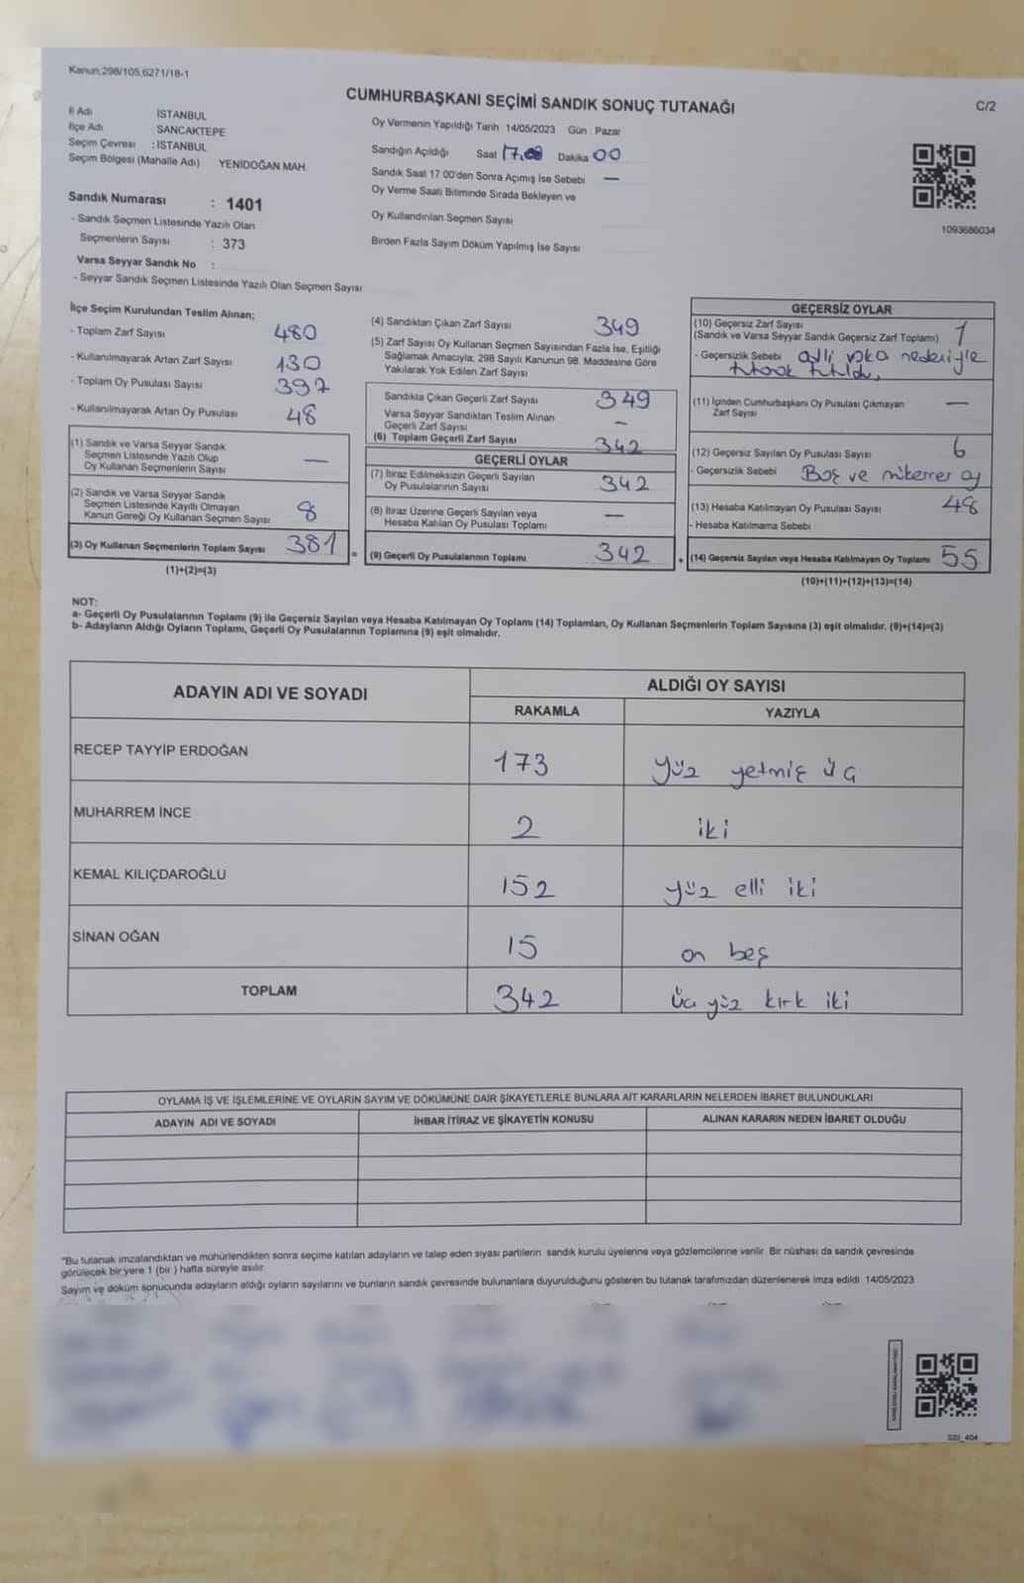 Kanun:298/105,6271/18-1
CUMHURBAŞKANI SEÇİMİ SANDIK SONUÇ TUTANAĞI
C/2
İl Adı İSTANBUL
İlçe Adı SANCAKTEPE
Seçim Çevresi : İSTANBUL
Seçim Bölgesi (Mahalle Adı) YENİDOĞAN MAH.
Sandık Numarası : 1401
- Sandık Seçmen Listesinde Yazılı Olan
Seçmenlerin Sayısı : 373
Varsa Seyyar Sandık No :
- Seyyar Sandık Seçmen Listesinde Yazılı Olan Seçmen Sayısı
Oy Vermenin Yapıldığı Tarih 14/05/2023 Gün : Pazar
Sandığın Açıldığı Saat 17.00 Dakika 00
Sandık Saat 17:00'den Sonra Açımış İse Sebebi —
Oy Verme Saati Bitiminde Sırada Bekleyen ve
Oy Kullandırılan Seçmen Sayısı
Birden Fazla Sayım Döküm Yapılmış İse Sayısı
1093686034
İlçe Seçim Kurulundan Teslim Alınan;
- Toplam Zarf Sayısı 480
- Kullanılmayarak Artan Zarf Sayısı 130
- Toplam Oy Pusulası Sayısı 397
- Kullanılmayarak Artan Oy Pusulası 48
(1) Sandık ve Varsa Seyyar Sandık
Seçmen Listesinde Yazılı Olup
Oy Kullanan Seçmenlerin Sayısı —
(2) Sandık ve Varsa Seyyar Sandık
Seçmen Listesinde Kayıtlı Olmayan
Kanun Gereği Oy Kullanan Seçmen Sayısı 8
(3) Oy Kullanan Seçmenlerin Toplam Sayısı 381 =
(1)+(2)=(3)
(4) Sandıktan Çıkan Zarf Sayısı 349
(5) Zarf Sayısı Oy Kullanan Seçmen Sayısından Fazla İse, Eşitliği
Sağlamak Amacıyla; 298 Sayılı Kanunun 98. Maddesine Göre
Yakılarak Yok Edilen Zarf Sayısı
Sandıkta Çıkan Geçerli Zarf Sayısı 349
Varsa Seyyar Sandıktan Teslim Alınan
Geçerli Zarf Sayısı —
(6) Toplam Geçerli Zarf Sayısı 342
GEÇERLİ OYLAR
(7) İtiraz Edilmeksizin Geçerli Sayılan
Oy Pusulalarının Sayısı 342
(8) İtiraz Üzerine Geçerli Sayılan veya
Hesaba Katılan Oy Pusulası Toplamı —
(9) Geçerli Oy Pusulalarının Toplamı 342 +
GEÇERSİZ OYLAR
(10) Geçersiz Zarf Sayısı
(Sandık ve Varsa Seyyar Sandık Geçersiz Zarf Toplamı) 1
- Geçersizlik Sebebi nedeniyle
(11) İçinden Cumhurbaşkanı Oy Pusulası Çıkmayan
Zarf Sayısı —
(12) Geçersiz Sayılan Oy Pusulası Sayısı 6
- Geçersizlik Sebebi Boş ve mükerrer oy
(13) Hesaba Katılmayan Oy Pusulası Sayısı 48
- Hesaba Katılmama Sebebi
(14) Geçersiz Sayılan veya Hesaba Katılmayan Oy Toplamı 55
(10)+(11)+(12)+(13)=(14)
NOT:
a- Geçerli Oy Pusulalarının Toplamı (9) ile Geçersiz Sayılan veya Hesaba Katılmayan Oy Toplamı (14) Toplamları, Oy Kullanan Seçmenlerin Toplam Sayısına (3) eşit olmalıdır. (9)+(14)=(3)
b- Adayların Aldığı Oyların Toplamı, Geçerli Oy Pusulalarının Toplamına (9) eşit olmalıdır.
ADAYIN ADI VE SOYADI
ALDIĞI OY SAYISI
RAKAMLA YAZIYLA
RECEP TAYYİP ERDOĞAN 173 yüz yetmiş üç
MUHARREM İNCE 2 iki
KEMAL KILIÇDAROĞLU 152 yüz elli iki
SİNAN OĞAN 15 on beş
TOPLAM 342 üç yüz kırk iki
OYLAMA İŞ VE İŞLEMLERİNE VE OYLARIN SAYIM VE DÖKÜMÜNE DAİR ŞİKAYETLERLE BUNLARA AİT KARARLARIN NELERDEN İBARET BULUNDUKLARI
ADAYIN ADI VE SOYADI İHBAR İTİRAZ VE ŞİKAYETİN KONUSU ALINAN KARARIN NEDEN İBARET OLDUĞU
"Bu tutanak imzalandıktan ve mühürlendikten sonra seçime katılan adayların ve talep eden siyasi partilerin sandık kurulu üyelerine veya gözlemcilerine verilir. Bir nüshası da sandık çevresinde
görülecek bir yere 1 (bir ) hafta süreyle asılır.
Sayım ve döküm sonucunda adayların aldığı oyların sayılarını ve bunların sandık çevresinde bulunanlara duyurulduğunu gösteren bu tutanak tarafımızdan düzenlenerek imza edildi. 14/05/2023